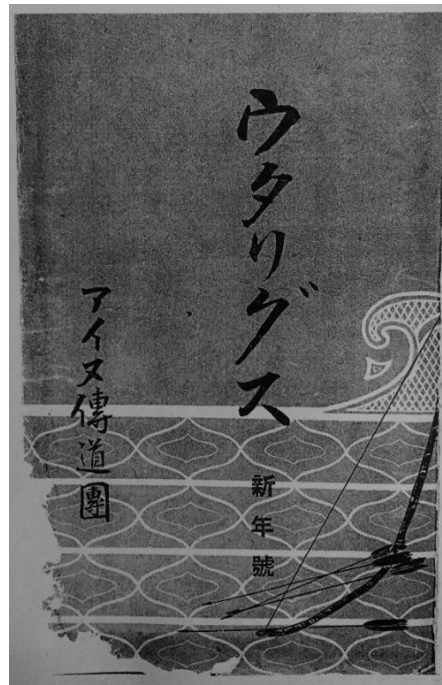 ウタリグス
新年號
アイヌ傳道團